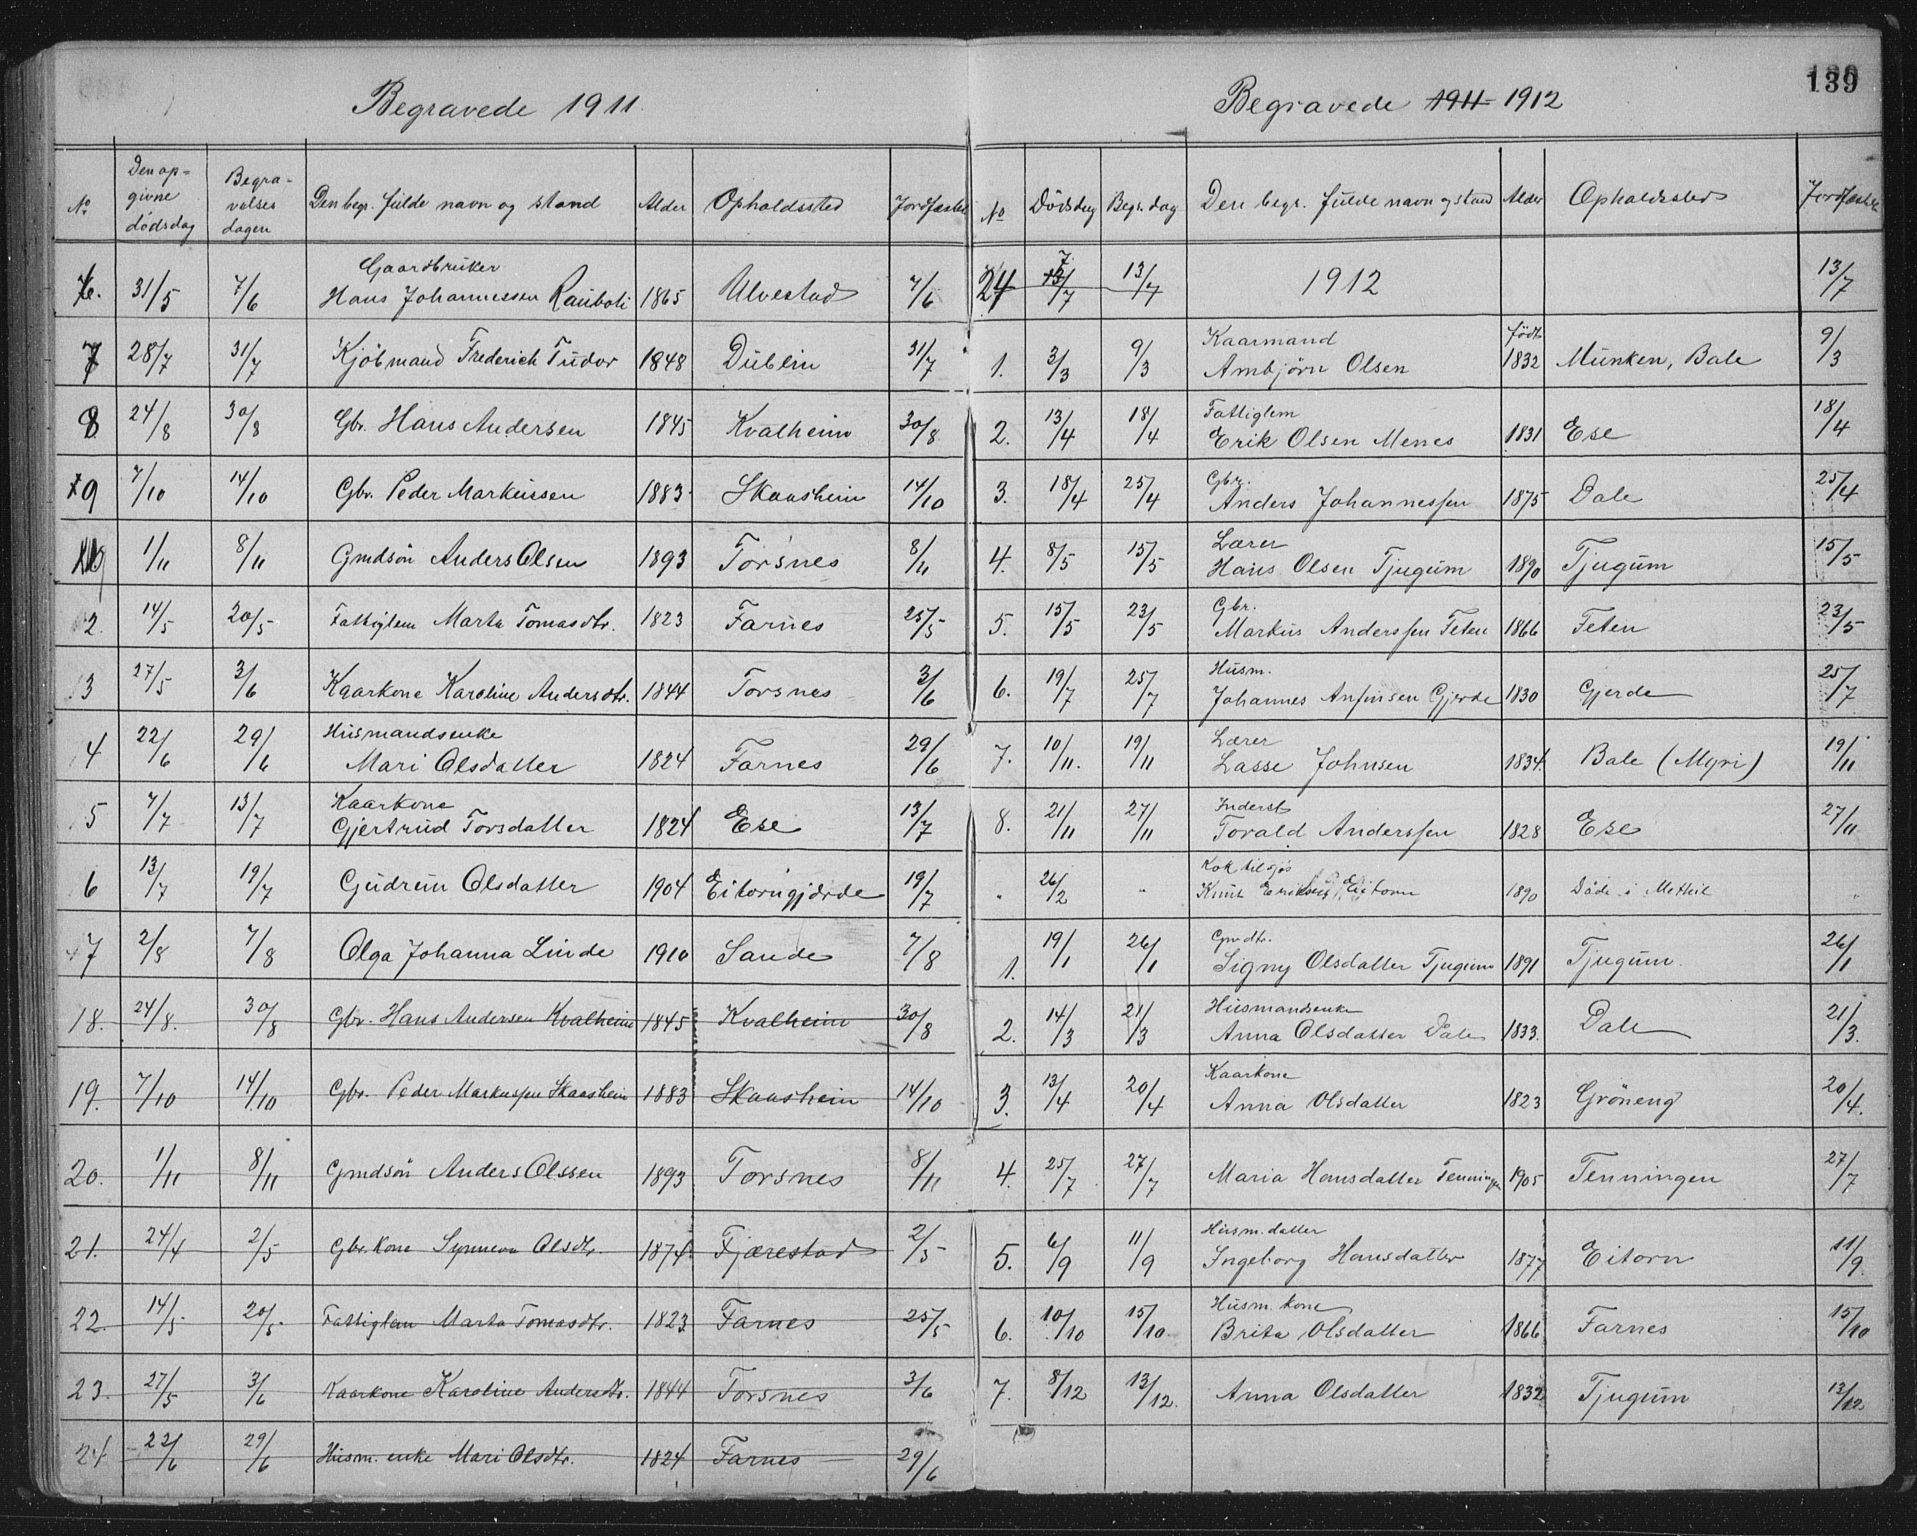 139
Begravede 1911.
No Den opgivne dødsdag Begravelses dagen Den begr. fulde navn og stand Alder Opholdssted Jordfæstet
6. 31/5 7/6 Gaardbruker
Hans Johannessen 1865 Ulvestad 7/6
7 28/7 31/7 Kjøbmand Frederich Tudor 1848 Dublin 31/7
8 24/8 30/8 Gbr. Hans Andersen 1845 Kvalheim 30/8
9 7/10 14/10 Gbr. Peder Markussen 1883 Skaasheim 14/10
1/11 8/11 Gmdsön Anders Olsen 1893 Torsnes 8/11
2. 14/5 20/5 Fattiglem Marta Tomasdtr. 1823 Farnes 25/5
3 27/5 3/6 Kaarkone Karoline Andersdtr. 1844 Torsnes 3/6
4 22/6 29/6 Husmandsenke
Mari Olsdatter 1824 Farnes 29/6
5 7/7 13/7 Kaarkone
Gjertrud Torsdatter 1824 Ese 13/7
6 13/7 19/7 Gudrun Olsdatter 1904 Eitorngjærde 19/7
7 2/8 7/8 Olga Johanna Linde 1910 Sande 7/8
18. 24/8. 30/8 Gbr. Hans Andersen Kvalheim 1845 Kvalheim 30/8
19. 7/10 14/10 Gbr. Peder Markussen Skaasheim 1883 Skaasheim 14/10
20. 1/11 8/11 Gmdsön Anders Olssen 1893 Torsnes 8/11
21. 24/4 2/5 Gbr.kone Synneva Olsdtr. 1874 Fjærestad 2/5
22. 14/5 20/5 Fattiglem Marta Tomasdtr. 1823 Farnes 25/5
23. 27/5 3/6 Kaarkone Karoline Andersdtr. 1844 Torsnes 3/6
24 22/6 29/6 Husm. enke Mari Olsdtr. 1824 Farnes 29/6
Begravede 1911 1912
No Dödsdag Begr. dag Den begr. fulde navn og stand Alder Opholdssted Jordfæstet
24 13/7 7 13/7 1912 13/7
1. 3/3 9/3 Kaarmand
Ambjörn Olsen født 1832 Munken, Bale 9/3
2. 13/4 18/4 Fattiglem
Erik Olsen Menes 1831 Ese 18/4
3. 18/4 25/4 Gbr.
Anders Johannessen 1875 Dale 25/4
4. 8/5 15/5 Lærer
Hans Olsen Tjugum 1890 Tjugum 15/5
5. 15/5 23/5 Gbr.
Markus Anderssen Feten 1866 Feten 23/5
6. 19/7 25/7 Husm.
Johannes Anfinsen Gjerde 1830 Gjerde 25/7
7. 10/11. 19/11 Lærer
Lasse Johnsen 1834. Bale (Myri) 19/11
8. 21/11 27/11 Inderst
Torald Anderssen 1828 Ese 27/11
" 26/2 " Kok tilsjøs
Knut Eriksen Eitorn 1890 Døde i Methil "
1. 19/1 26/1 Gmdtr.
Signy Olsdatter Tjugum 1891 Tjugum. 26/1
2. 14/3 21/3 Husmandsenke
Anna Olsdatter Dale 1833. Dale 21/3.
3. 13/4 20/4 Kaarkone
Anna Olsdatter 1823 Gröneng 20/4.
4. 25/7 27/7 Maria Hansdatter Tenningen 1905 Tenningen 27/7
5. 6/9 11/9 Husm.datter
Ingeborg Hansdatter 1877 Eitorn 11/9.
6. 10/10 15/10 Husm. kone
Brita Olsdatter 1866 Farnes 15/10
7. 8/12 13/12. Anna Olsdatter 1832 Tjugum 13/12